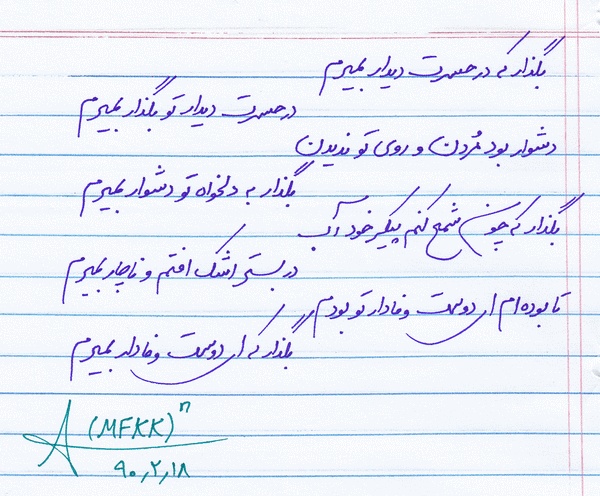 بگذار که در حسرت دیدار بمیرم
در حسرت دیدار تو بگذار بمیرم
دشوار بود مُردن و روی تو ندیدن
بگذار به دلخواه تو دشوار بمیرم
بگذار که چون شمع کنم پیکر خود آب
در بستر اشک افتم و ناچار بمیرم
تا بوده ام ای دوست وفادار تو بودم
بگذار که ای دوست وفادار بمیرم
A (MFKK)ⁿ
۹۰٫۲٫۱۸